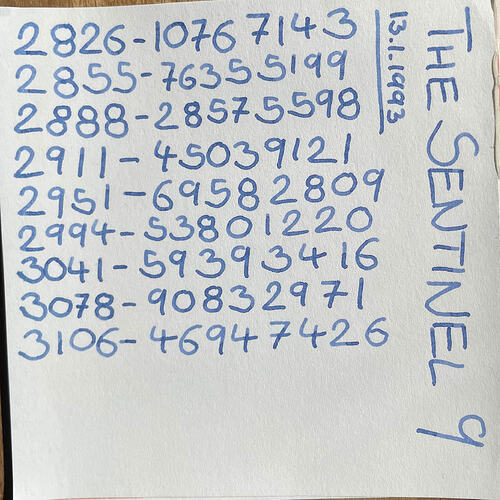 2826-10767143
2855-76355199
2888-28575598
2911-45039121
2951-69582809
2994-53801220
3041-59393416
3078-90832971
3106-46947426
THE SENTINEL 9
13.1.1993